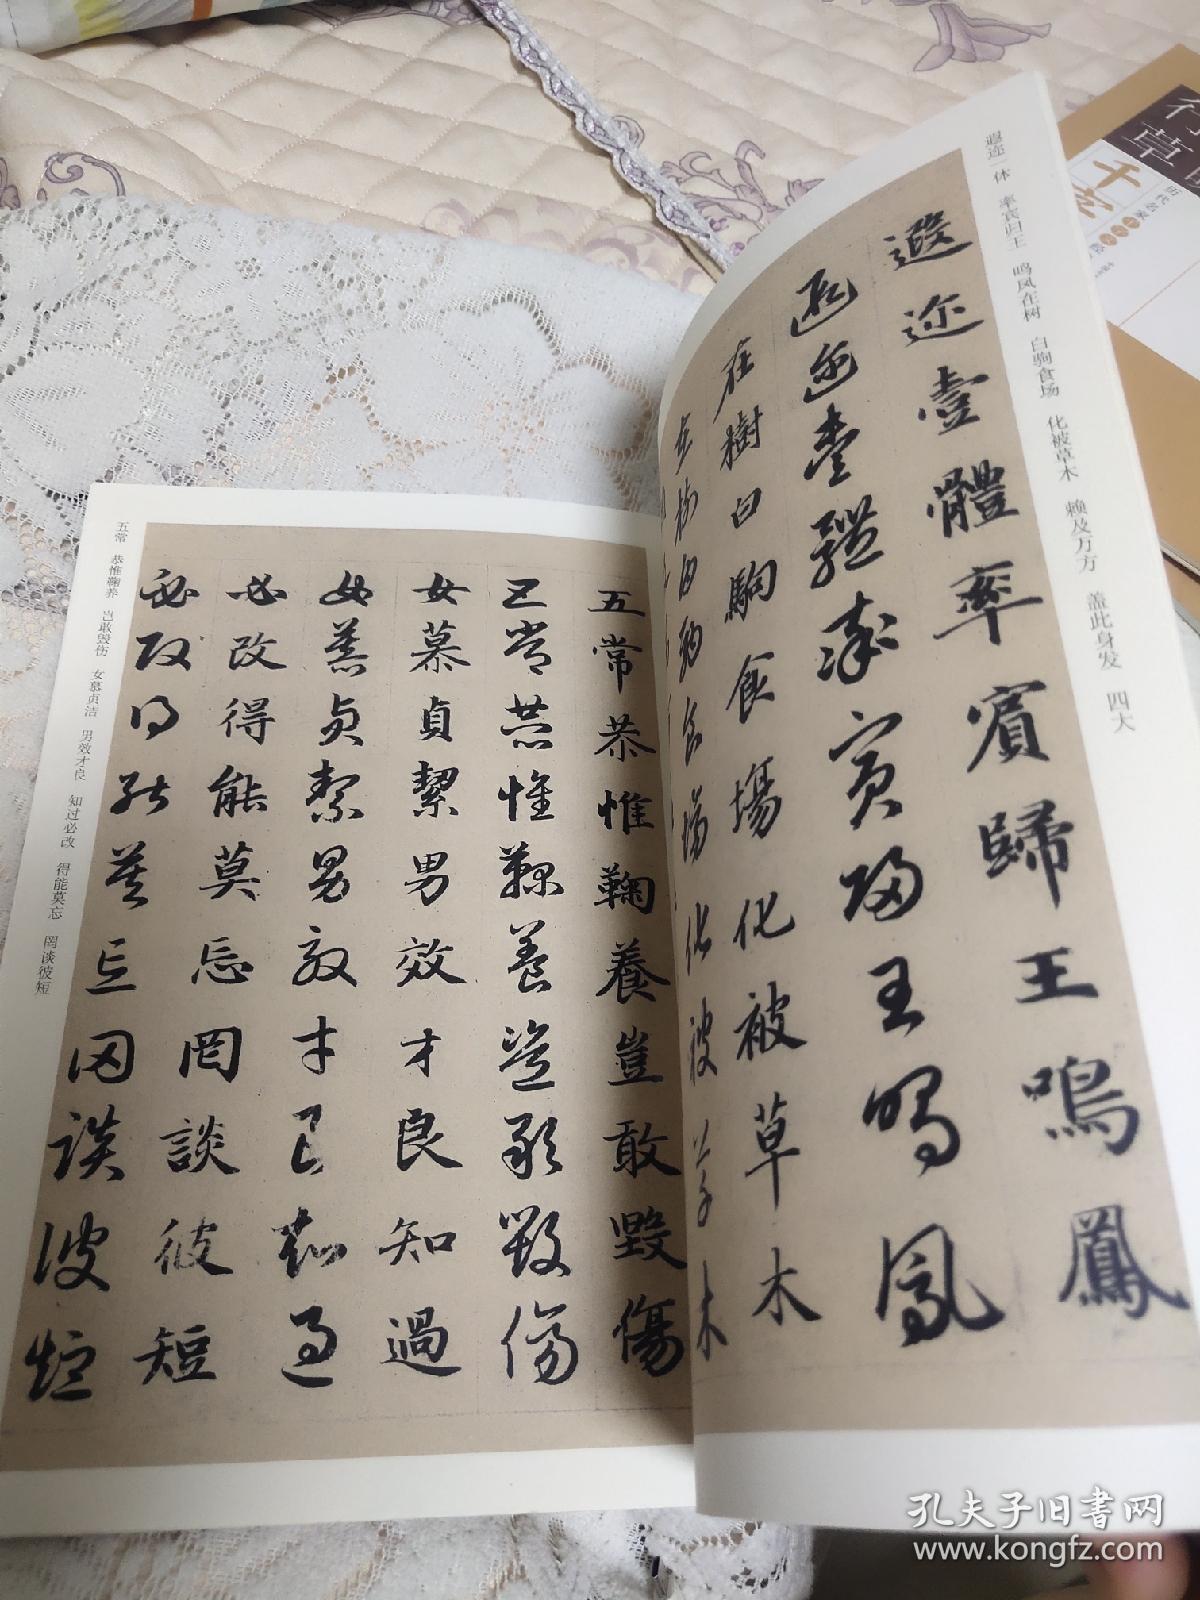 遐迩一体 率宾归王 鸣凤在树 白驹食场 化被草木 赖及万方 盖此身发 四大
遐迩壹體率賓歸王鳴鳳
遐迩壹體率賓歸王鳴鳳
在樹白駒食場化被草木
在樹白駒食場化被草木
五常恭惟鞠養豈敢毀傷
五常恭惟鞠養豈敢毀傷
女慕貞絜男效才良知過
女慕貞絜男效才良知過
必改得能莫忘罔談彼短
必改得能莫忘罔談彼短
五常 恭惟鞠养 岂敢毁伤 女慕贞洁 男效才良 知过必改 得能莫忘 罔谈彼短
行草
千字
孔夫子旧书网
www.kongfz.com